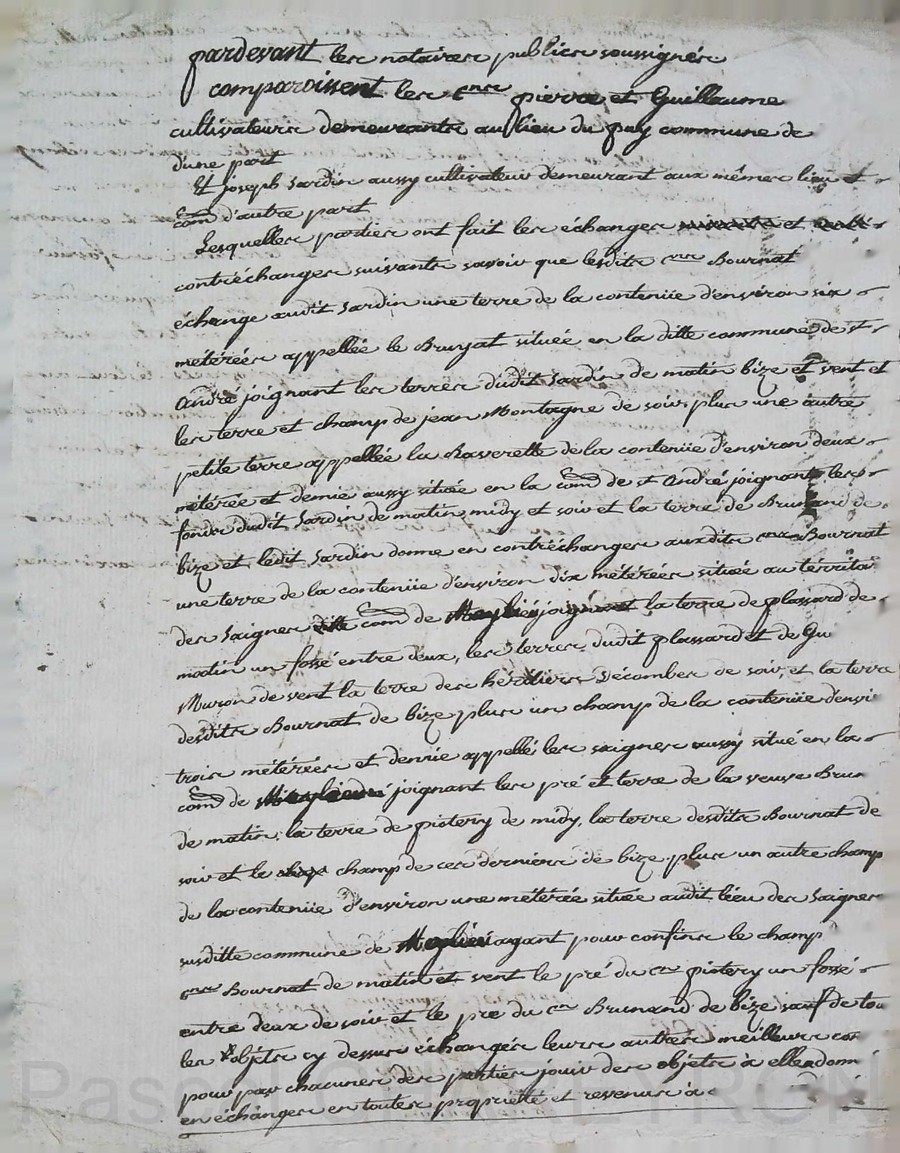 pardevant les notaires publics soussignés
comparoissent les cnes pierre et Guillaume
cultivateurs demeurants au lieu du puy commune de
d'une part
Et joseph Sardin aussy cultivateur demeurant aux mêmes lieu et
com d'autre part
Lesquelles parties ont fait les échanges et
contréchanges suivants savoir que lesdits cnes Bournat
échange audit Sardin une terre de la contenüe d'environ six
métérées appellée le située en la ditte commune de st
André joignant les terres dudit Sardin de matin bize et vent et
les terre et champ de jean Montagne de soir, plus une autre
petite terre appellée la Raverette de la contenüe d'environ deux
métérée et demie aussy située en la com de st André joignant les
fonds dudit Sardin de matin, midy et soir et la terre de Brunand de
bize et ledit Sardin donne en contréchanges auxdits cnes Bournat
une terre de la contenüe d'environ dix métérées située au territoi
des Saignes ditte com de joignant la terre de plassard de
matin un fossé entre deux, les terres dudit plassard et de Gu
Muron de vent la terre des héritiers Décombes de soir, et la terre
desdits Bournat de bize plus un champ de la contenüe d'envi
trois métérées et demie appellé les saignes aussy situé en la
com de joignant les pré et terre de la veuve Brun
de matin, la terre de pistery de midy, la terre desdits Bournat de
soir et le champ de ces derniers de bize. plus un autre champ
de la contenüe d'environ une métérée située audit lieu des Saignes
susditte commune de ayant pour confins le champ
cnes Bournat de matin et vent le pré du cen pistery un fossé
entre deux de soir et le pré du cen Brunand de bize sauf de tou
les objets cy dessus échangés leurs autres meilleurs con
pour par chacunes des parties jouir des objets à elle donné
en échanges en toutes propriété et revenus à
Pascal CHALEYRON